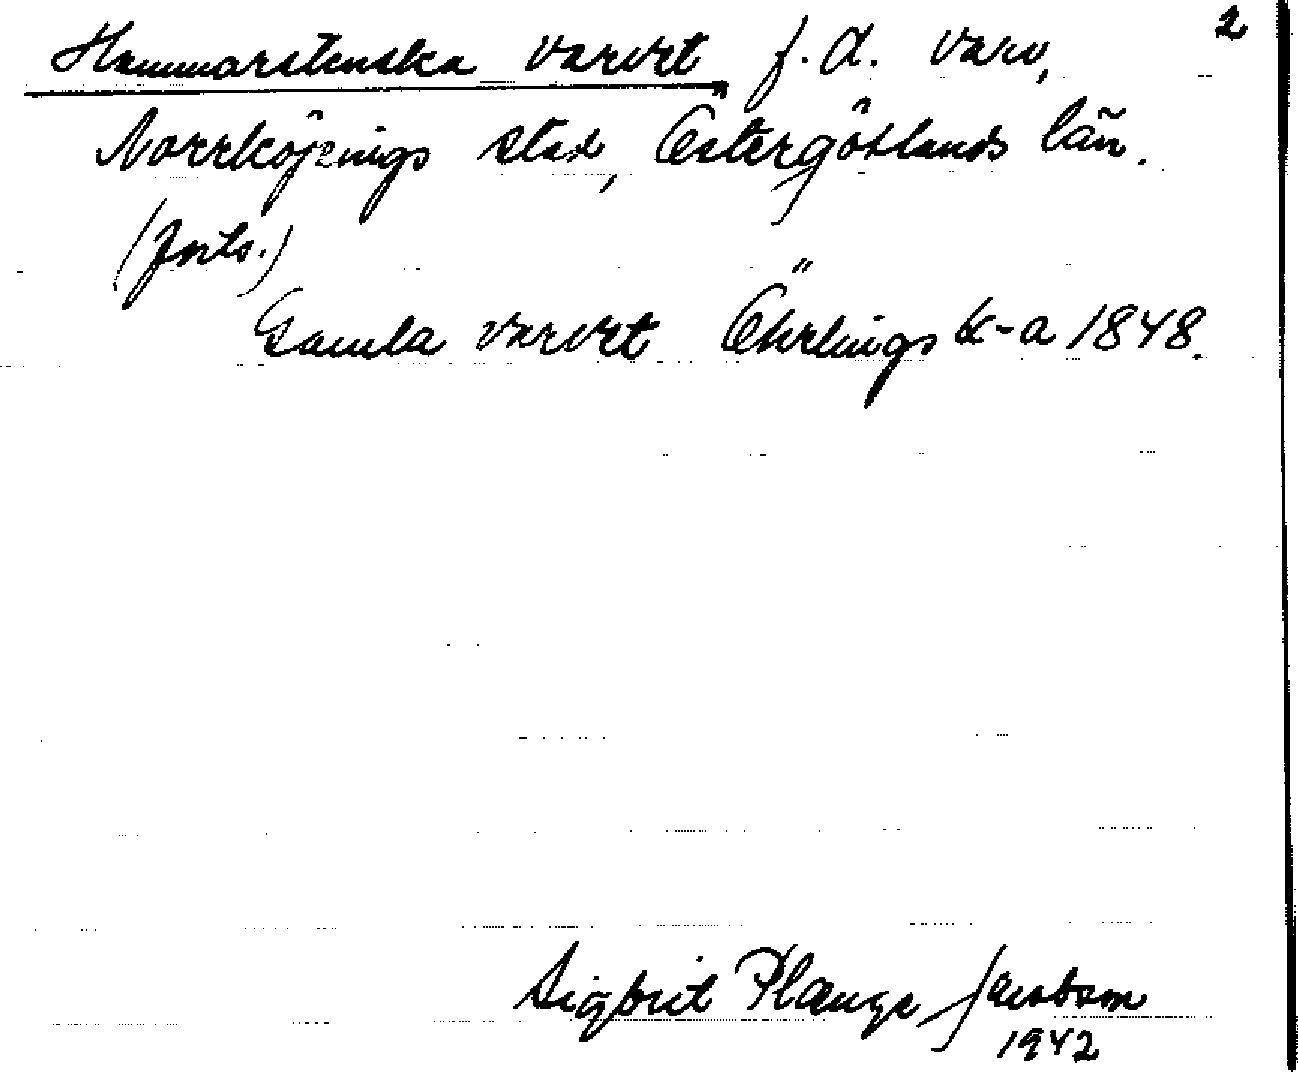 2
Hammarstenska varvet, f.d. varv,
Norrköpings stad, Östergötlands län.
(forts.)
Gamla varvet Öhrlings k-a 1848.
Sigbrit Plænge Jacobson
1942